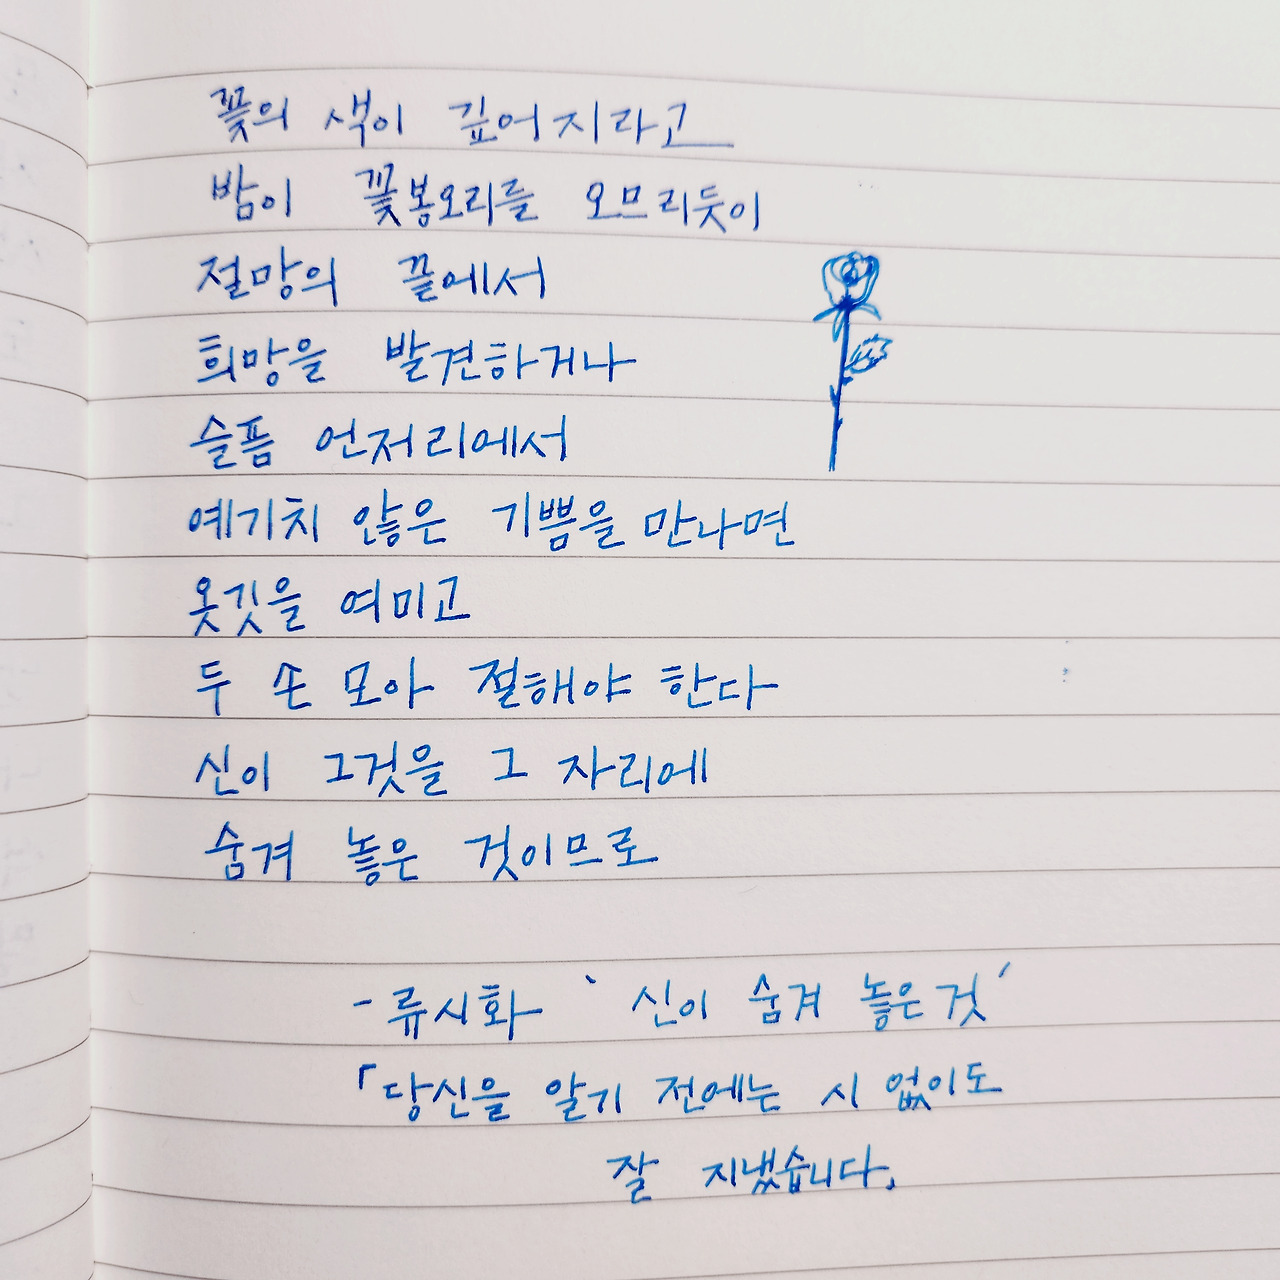 꽃의 색이 깊어지라고
밤이 꽃봉오리를 오므리듯이
절망의 끝에서
희망을 발견하거나
슬픔 언저리에서
예기치 않은 기쁨을 만나면
옷깃을 여미고
두 손 모아 절해야 한다
신이 그것을 그 자리에
숨겨 놓은 것이므로
- 류시화 ‵신이 숨겨 놓은 것′
「당신을 알기 전에는 시 없이도
잘 지냈습니다」